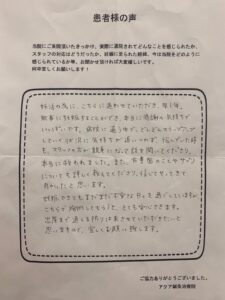 患者様の声
当院にご来院頂いたきっかけ、実際に通院されてどんなことを感じられたか、
スタッフの対応はどうだったか、妊娠に至られた経緯、今は当院をどのように
感じられているか等、お聞かせ頂ければ大変嬉しいです。
何卒宜しくお願いします!
妊活の為に、こちらに通わせていただき、約1年。
無事に妊娠することができ、本当に感謝の気持ちで
いっぱいです。病院に通う中で、どんどんステップアップ
していく状況に気持ちが追いつかず、悩んでいた時
も、スタッフの方が親身になって話を聞いてくださり、
本当に救われました。また、栄養面のことやサプリ
についても詳しく教えてくださり、信じてやってきて
良かったと思います。
妊娠できてもまだまだ不安な日々を過ごしていますが、
こちらで施術してもらうと、とても安心できます。
出産まで通える限りは来させていただきたいと
思いますので、宜しくお願い致します。
ご協力ありがとうございました。
アクア鍼灸治療院